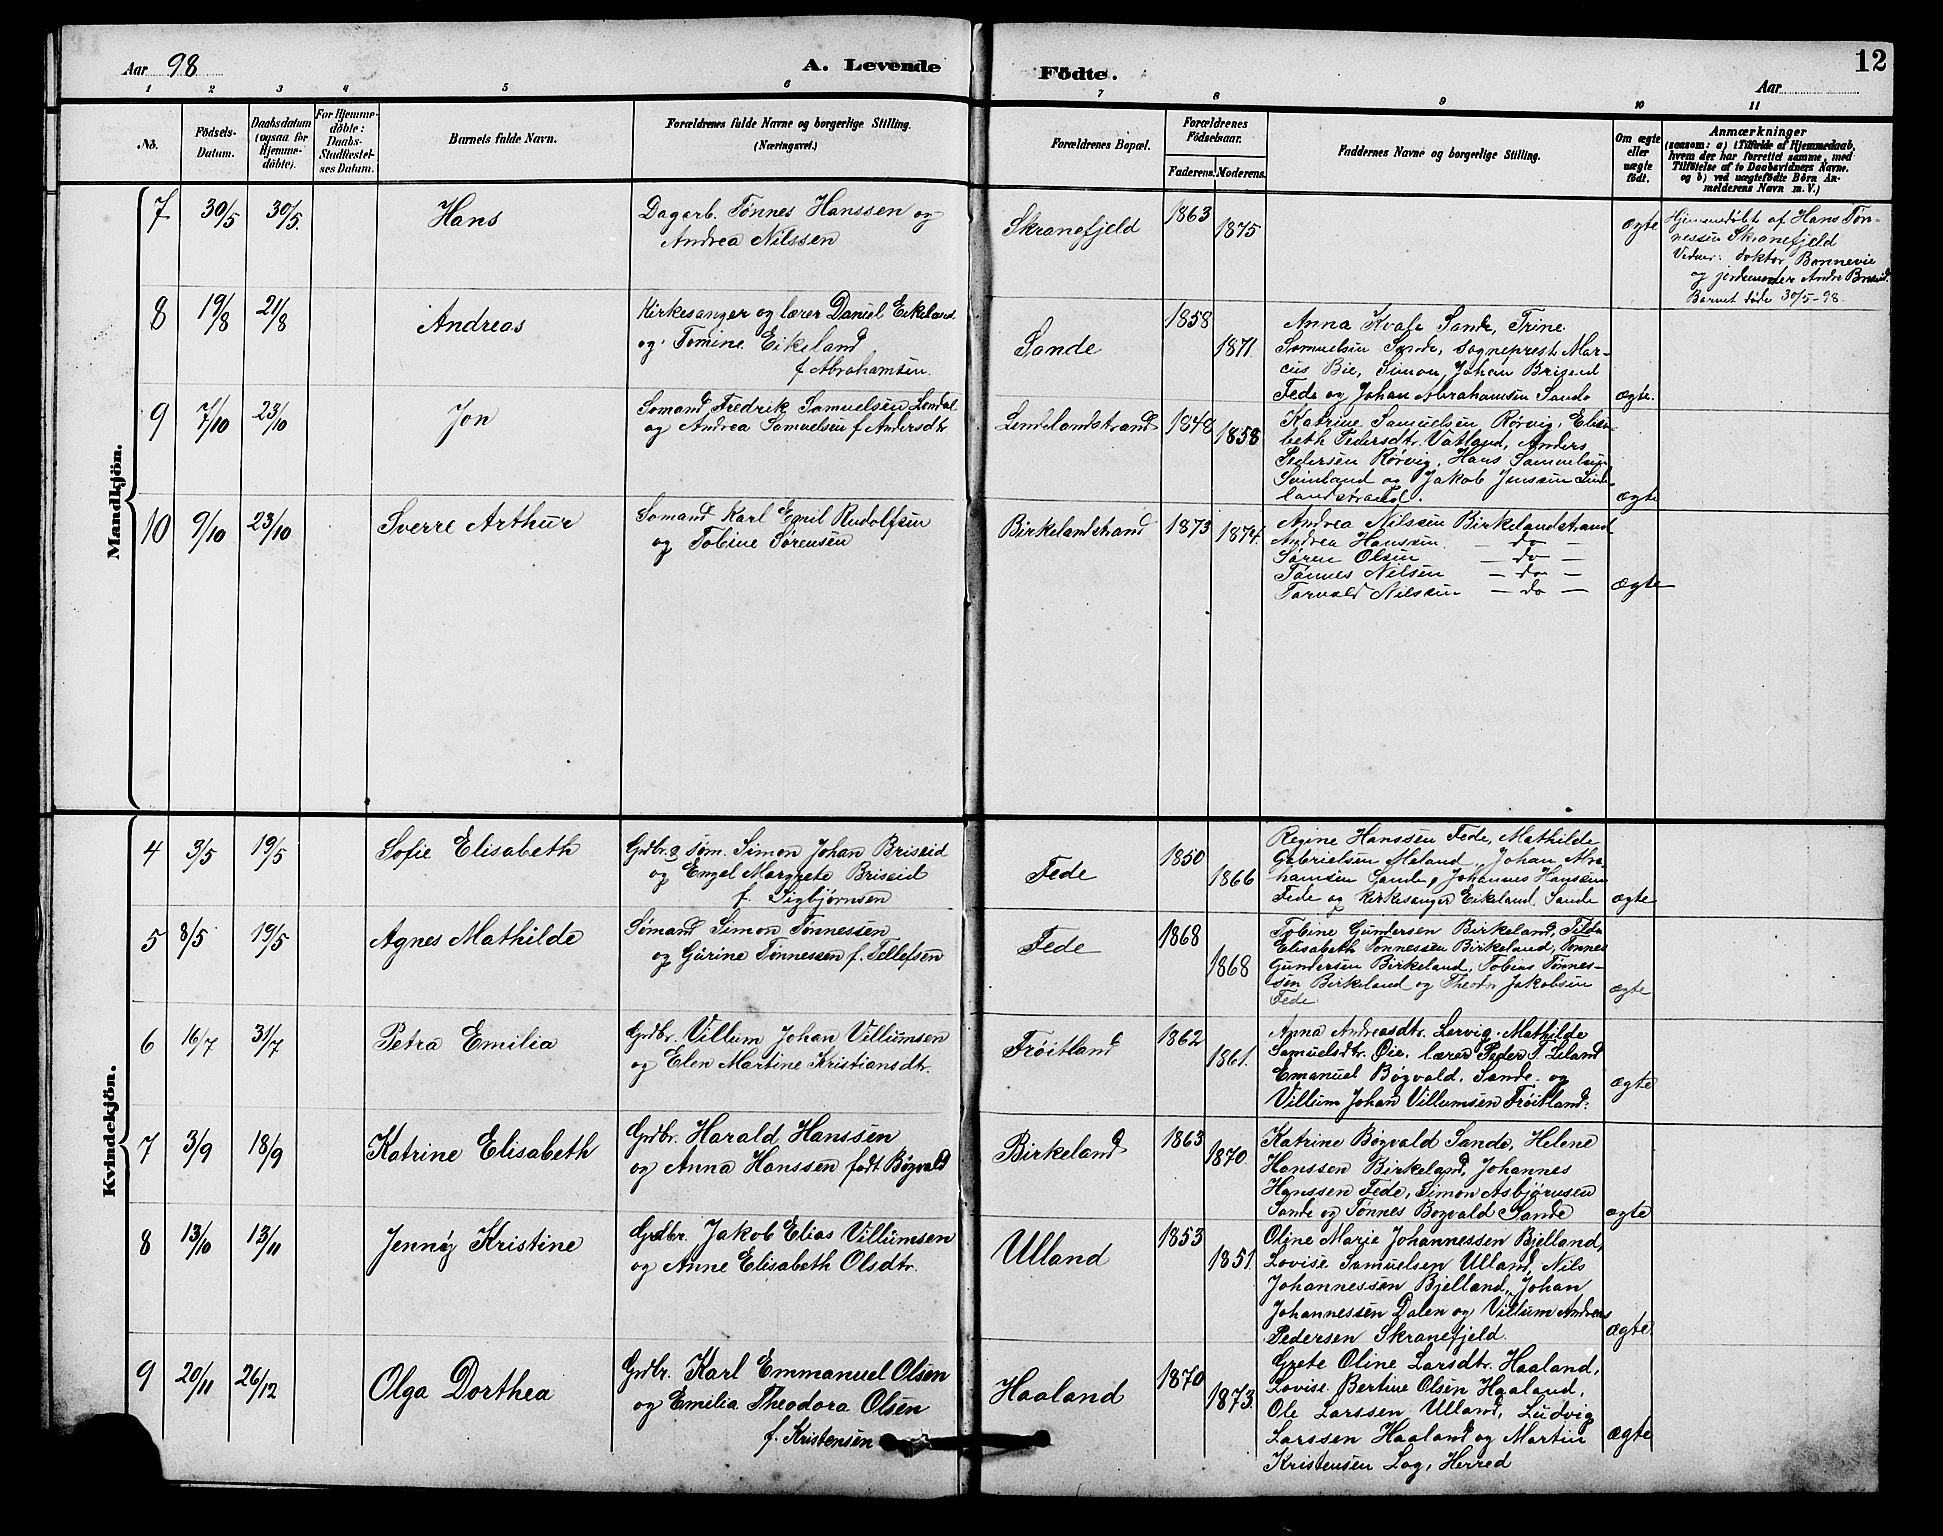 Aar 98
A. Levende
Födte.
12
Aar
1 2 3 4 5 6 7 8 9 10 11
No.
Födsels-
Datum.
Daabsdatum
(ogsaa for
Hjemme-
döbte).
For Hjemme-
döbte:
Daabs-
Stadfæstel-
ses Datum.
Barnets fulde Navn.
Forældrenes fulde Navne og borgerlige Stilling.
(Næringsvei.)
Forældrenes Bopæl.
Forældrenes
Födselsaar.
Faderens. Moderens.
Faddernes Navne og borgerlige Stilling.
Om ægte
eller
uægte
födt.
Anmærkninger
(saasom: a) i Tilfælde af Hjemmedaab,
hvem der har forrettet samme, med
Tilföielse af to Daabsvidners Navne.
og b) ved uægtefödte Börn An-
melderens Navn m. V.)
Mandkjön.
7 30/5 30/5. Hans
Dagarb. Tönnes Hanssen og
Andrea Nilssen
Skranefjeld 1863 1875
ægte
Hjemmedøbt af Hans Tøn-
nessen Skranefjeld
Vidner: doktor Bonnevie
og jordemoder Andre
Barnet døde 30/5-98.
8 19/8 21/8 Andreas
Kirkesanger og lærer Daniel Eikeland
og Tomine Eikeland
f Abrahamsen.
Sande 1858 1871.
Anna Kvale Sande, Trine
Samuelsen Sande, sogneprest Mar-
cus Bie, Simon Johan Briseid
Fede og Johan Abrahamsen Sande
ægte.
9 7/10 23/10 Jon
Sømand Fredrik Samuelsen
og Andrea Samuelsen f Andersdtr
Lendelandstrand 1848 1858
Katrine Samuelsen Rørvig, Elisa-
beth Pedersdtr. Vatland, Anders
Pedersen Rørvig, Hans Samuelsen
og Jakob Jenssen
landstrand.
ægte
10 9/10 23/10 Sverre Arthur
Sömand Karl Emil Rudolfsen
og Tobine Sørensen
Birkelandstrand 1873 1874.
Andrea Nilssen Birkelandstrand
Andrea Hanssen — do —
Søren Olsen — do —
Tönnes Nilsen — do —
Torvald Nilssen — do —
ægte
Kvindekjön.
4 3/5 19/5 Sofie Elisabeth
Grdbr. & søm. Simon Johan Briseid
og Engel Margrete Briseid
f. Sigbjørnsen
Fede 1850 1866
Regine Hanssen Fede, Mathilde
Gabrielsen Meland, Johan Abra-
hamsen Sande, Johannes Hanssen
Fede og kirkesanger Eikeland Sande
ægte
5 8/5 19/5 Agnes Mathilde
Sømand Simon Tönnessen
og Gurine Tönnessen f. Tellefsen
Fede 1868 1868
Tobine Gundersen Birkeland, Tilda
Elisabeth Tonnessen Birkeland, Tonnes
Gundersen Birkeland, Tobias Tønnes-
sen Birkeland og Theodor Jakobsen
Fede
ægte
6 16/7 31/7 Petra Emilia
Grdbr. Villum Johan Villumsen
og Elen Martine Kristiansdtr.
Frøitland 1862 1861.
Anna Andreasdtr. Lervig. Mathilde
Samuelsdtr. Øie. lærer Peder T. Eiland
Emanuel Bøgvald. Sande. og
Villum Johan Villumsen Frøitland.
ægte
7 3/9 18/9 Katrine Elisabeth
Grdbr. Harald Hanssen
og Anna Hanssen født Bøgvald
Birkeland 1863 1870
Katrine Bøgvald Sande, Helene
Hanssen Birkeland, Johannes
Hanssen Fede, Simon Asbjørnsen
Sande og Tønnes Bøgvald Sande
ægte
8 13/10 13/11 Jennÿ Kristine
Grdbr. Jakob Elias Villumsen
og Anne Elisabeth Olsdtr.
Ulland 1853 1851.
Oline Marie Johannessen Bjelland,
Lovise Samuelsen Ulland, Nils
Johannessen Bjelland, Johan
Johannessen Dalen og Villum Andreas
Pedersen Skranefjeld.
ægte.
9 20/11 26/12 Olga Dorthea
Grdbr. Karl Emmanuel Olsen
og Emilia Theodora Olsen
f. Kristensen
Haaland 1870 1873.
Grete Oline Larsdtr. Haaland,
Lovise Bertine Olsen Haaland,
Ole Larssen Ulland, Ludvig
Larssen Haaland og Martin
Kristensen Log, Herred
ægte